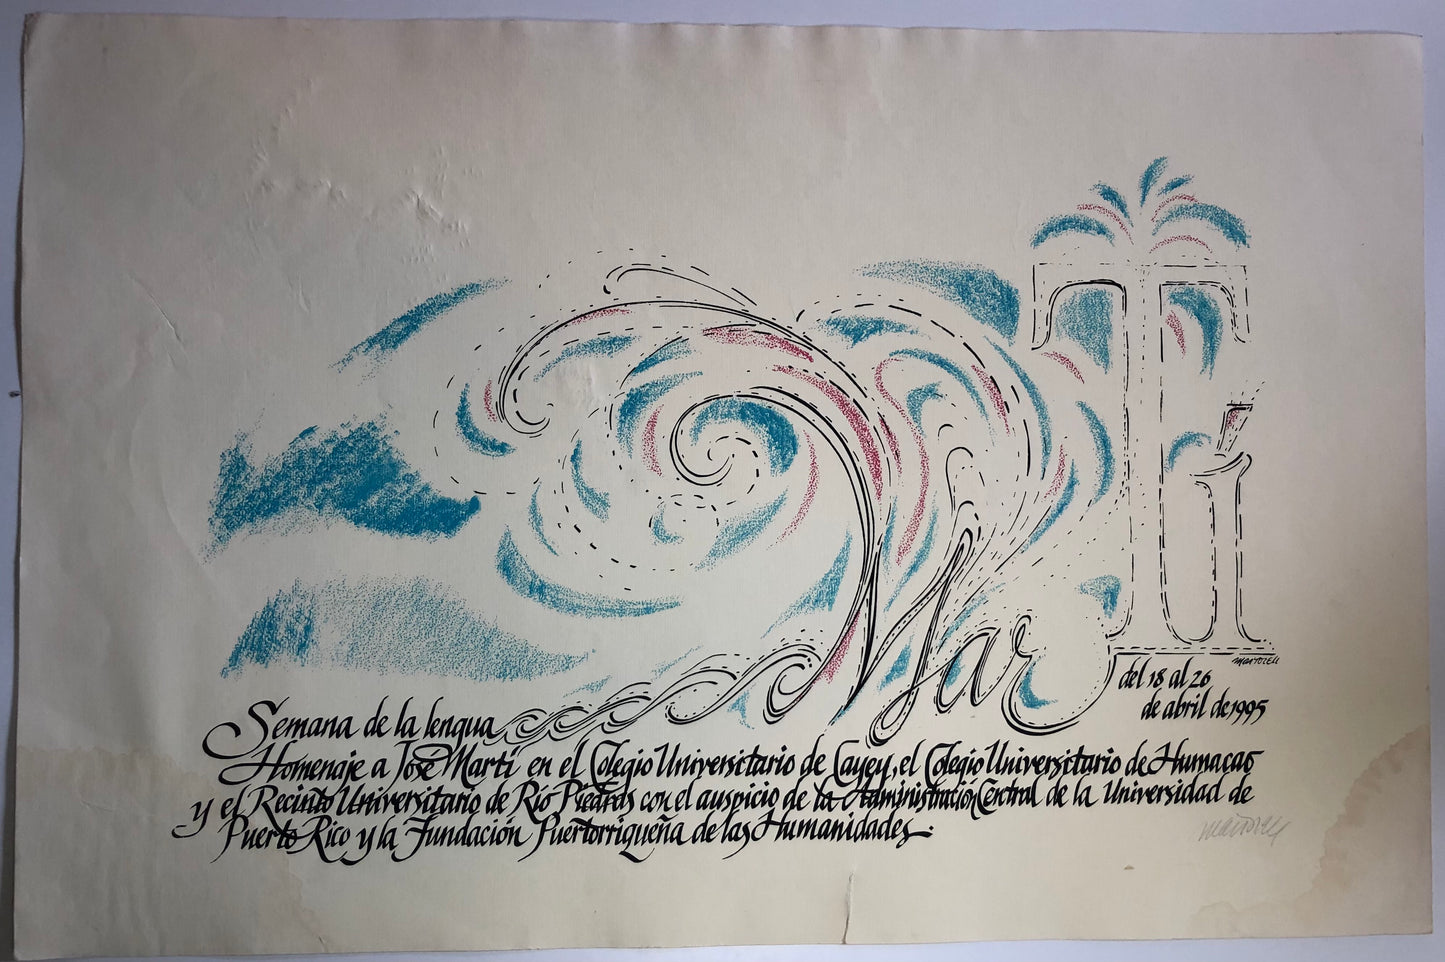 MarTí
martorell
del 18 al 26
de abril de 1995
Semana de la lengua
Homenaje a José Martí en el Colegio Universitario de Cayey, el Colegio Universitario de Humacao
y el Recinto Universitario de Río Piedras con el auspicio de la Administración Central de la Universidad de
Puerto Rico y la Fundación Puertorriqueña de las Humanidades.
martorell